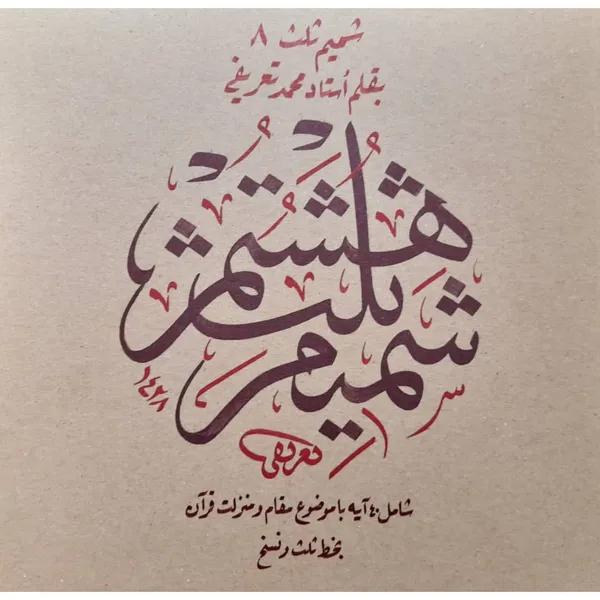 شمیم ثلث ۸
بقلم اُستاد محمد تعریفی
شمیم ثلث هشتم
۱۴۳۸
تعریفی
شامل ۴۰ آیه با موضوع مقام و منزلت قرآن
بخط ثلث و نسخ